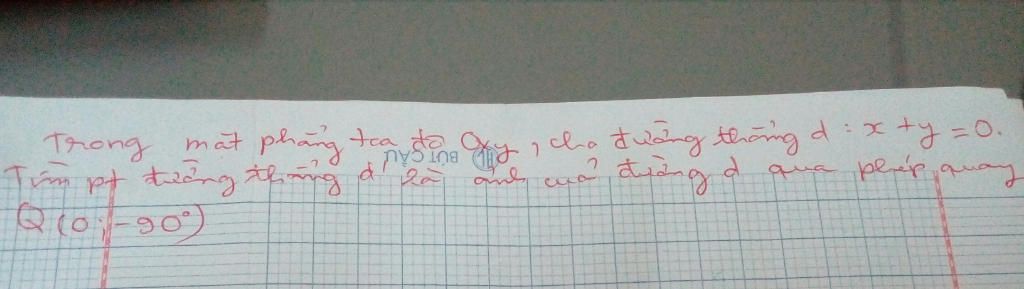 Trong mặt phẳng tọa độ Oxy, cho đường thẳng d : x + y = 0.
BÚT CẦU
Tìm pt đường thẳng d' là ảnh của đường d qua phép quay
Q (0; -90°)